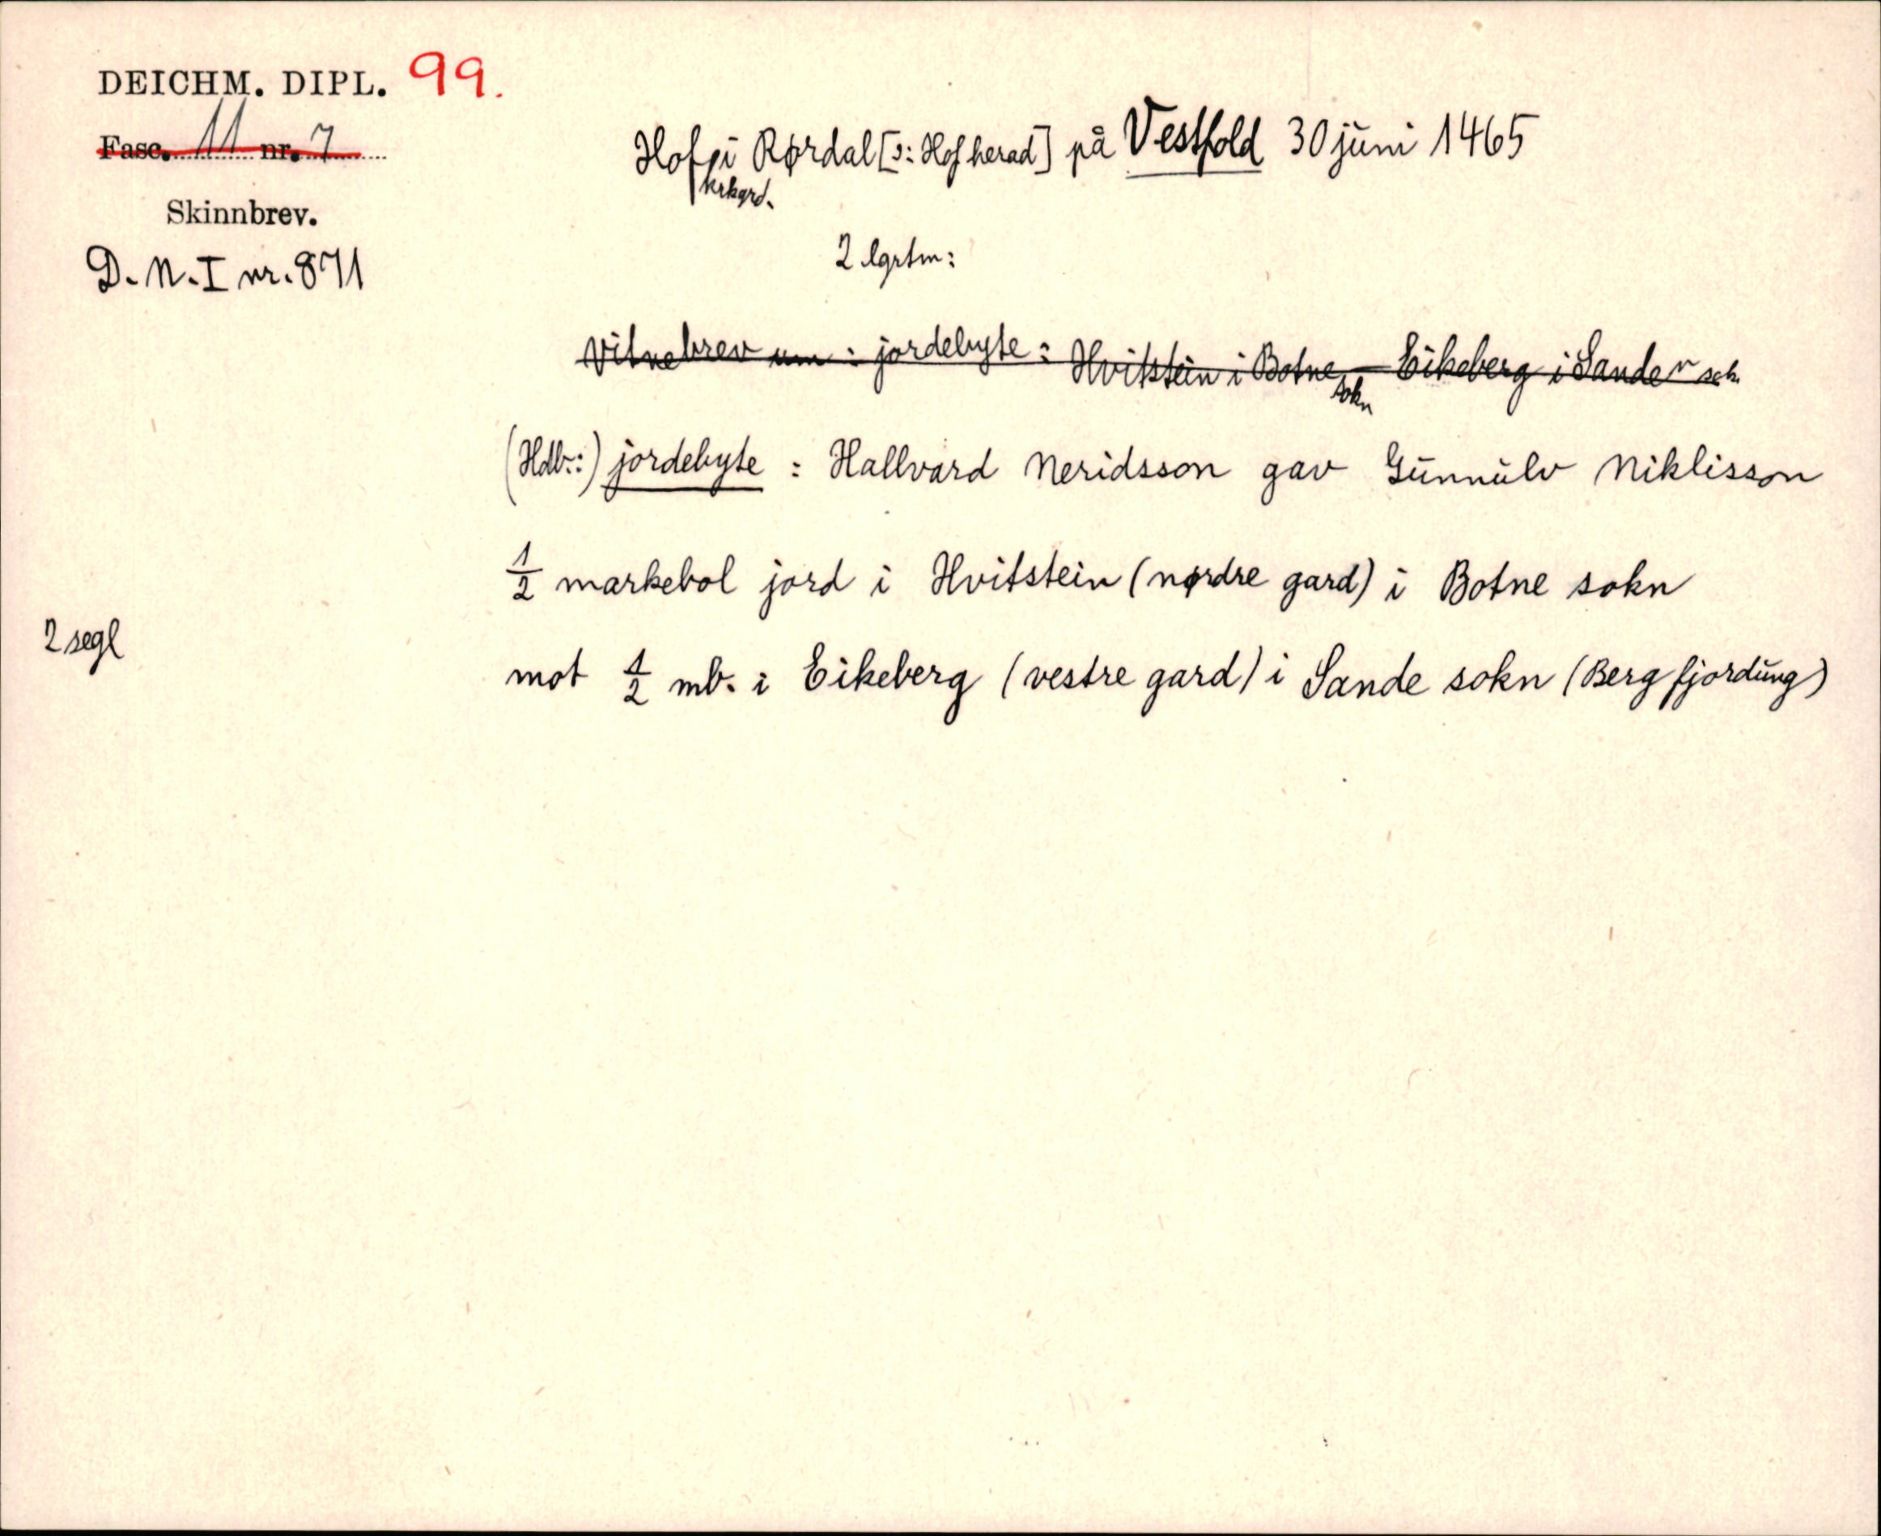 DEICHM. DIPL. 99.
Fasc. 11 nr. 7
Skinnbrev.
D. N. I nr. 871
Hof krkgrd. i Rørdal [ɔ: Hof herad] på Vestfold 30 juni 1465
2 lgrtm:
Vitnebrev um : jordebyte : Hvitstein i Botne sokn — Eikeberg i Sande sok.
(Hdb.:) jordebyte : Hallvard Neridsson gav Gunnulv Niklisson
1/2 markebol jord i Hvitstein (nørdre gard) i Botne sokn
2 segl
mot 1/2 mb. i Eikeberg (vestre gard) i Sande sokn (Berg fjordung)